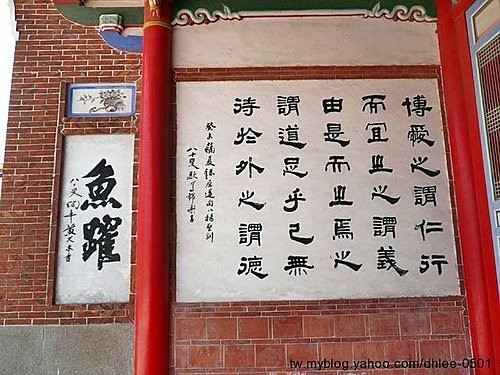 博愛之謂仁行
而宜之之謂義
由是而之焉之
謂道足乎己無
待於外之謂德
魚躍
tw.myblog.yahoo.com/dhlee-0501